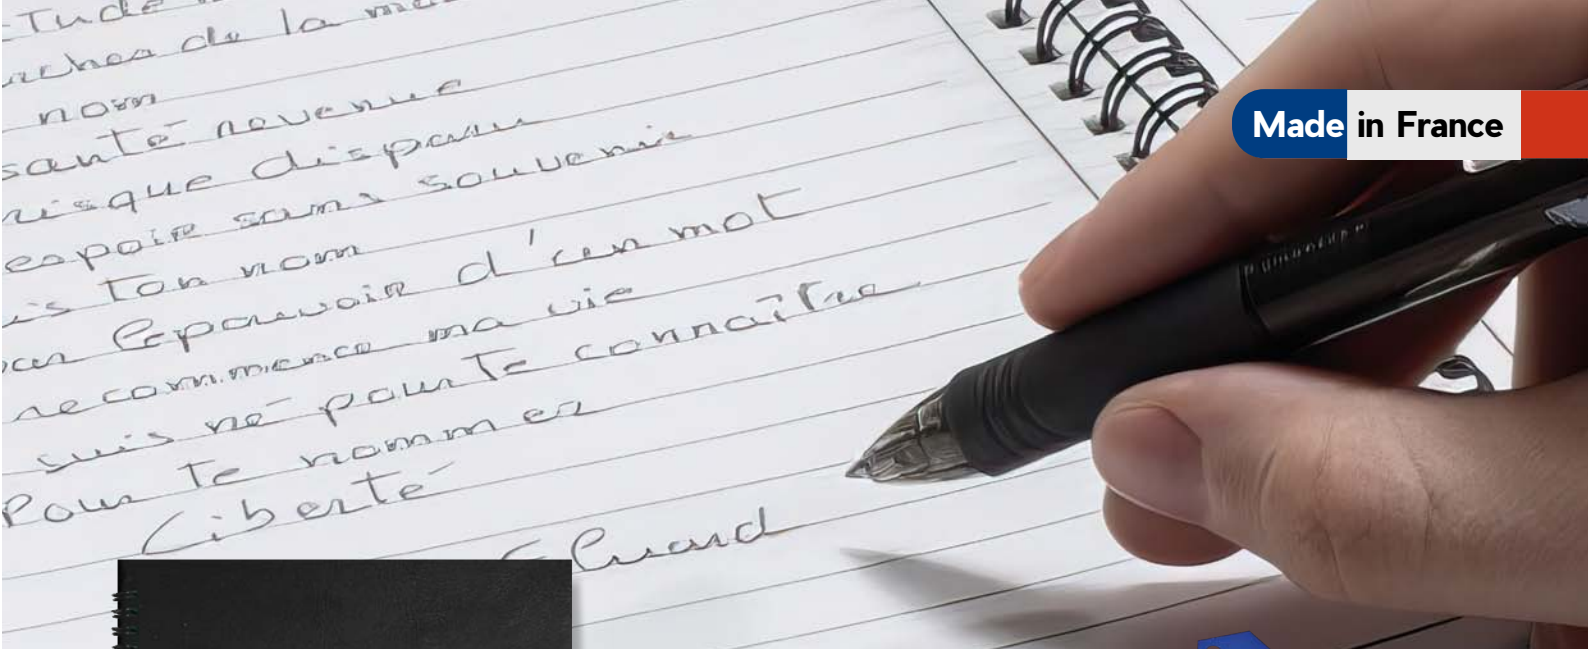 Tude
arches de la
nom
santé revenue
risque disparu
espoir sans souvenir
is ton nom
par le pouvoir d'un mot
recommence ma vie
suis né pour te connaître
Pour te nommer
Liberté
Eluard
Made in France